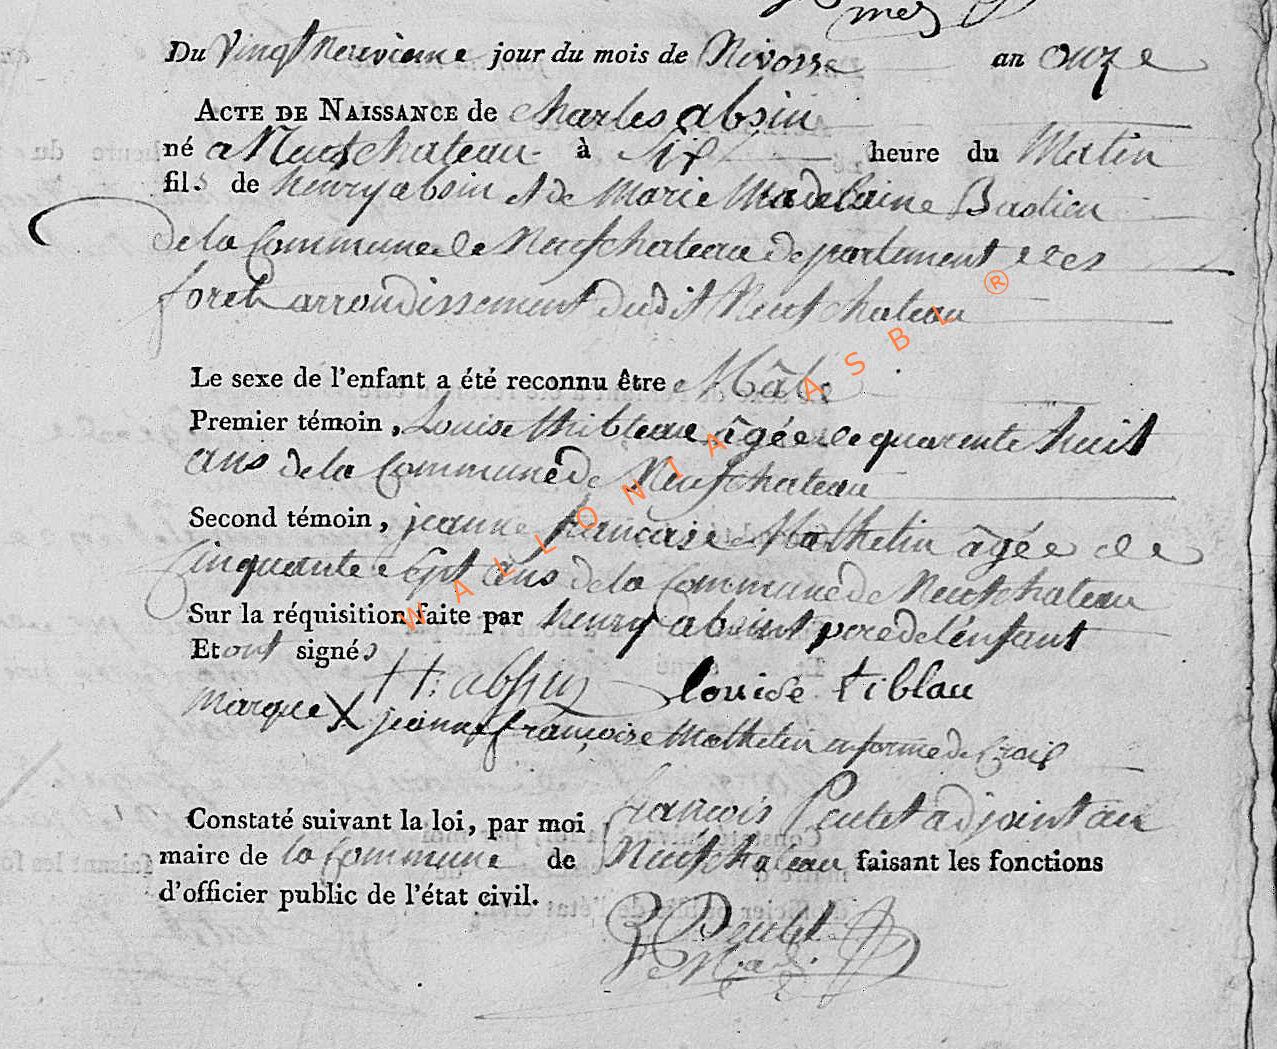 mes
Du Vingt Neuvieme jour du mois de Nivosse an onze
ACTE DE NAISSANCE de charles absin
né a Neufchateau à Six heure du Matin
fils de henry absin et de Marie Madelaine Bastien
de la Commune de Neufchateau departement des
foret arrondissement dudit Neufchateau
Le sexe de l'enfant a été reconnu être Mâle
Premier témoin, Louise thibteau âgée de quarente huit
ans de la Commune de Neufchateau
Second témoin, jeanne francoise Mathelin âgée de
Cinquante e Sept ans de la Commune de Neufchateau
Sur la réquisition faite par henry absint pere de l'enfant
Et ont signés
H: absin louise tiblau
Marque X jeanne françoise Mathelin en forme de Croix
Constaté suivant la loi, par moi françois Peulet adjoint au
maire de la Commune de Neufchateau faisant les fonctions
d'officier public de l'état civil.
Peulet
WALLONIA ASBL ®